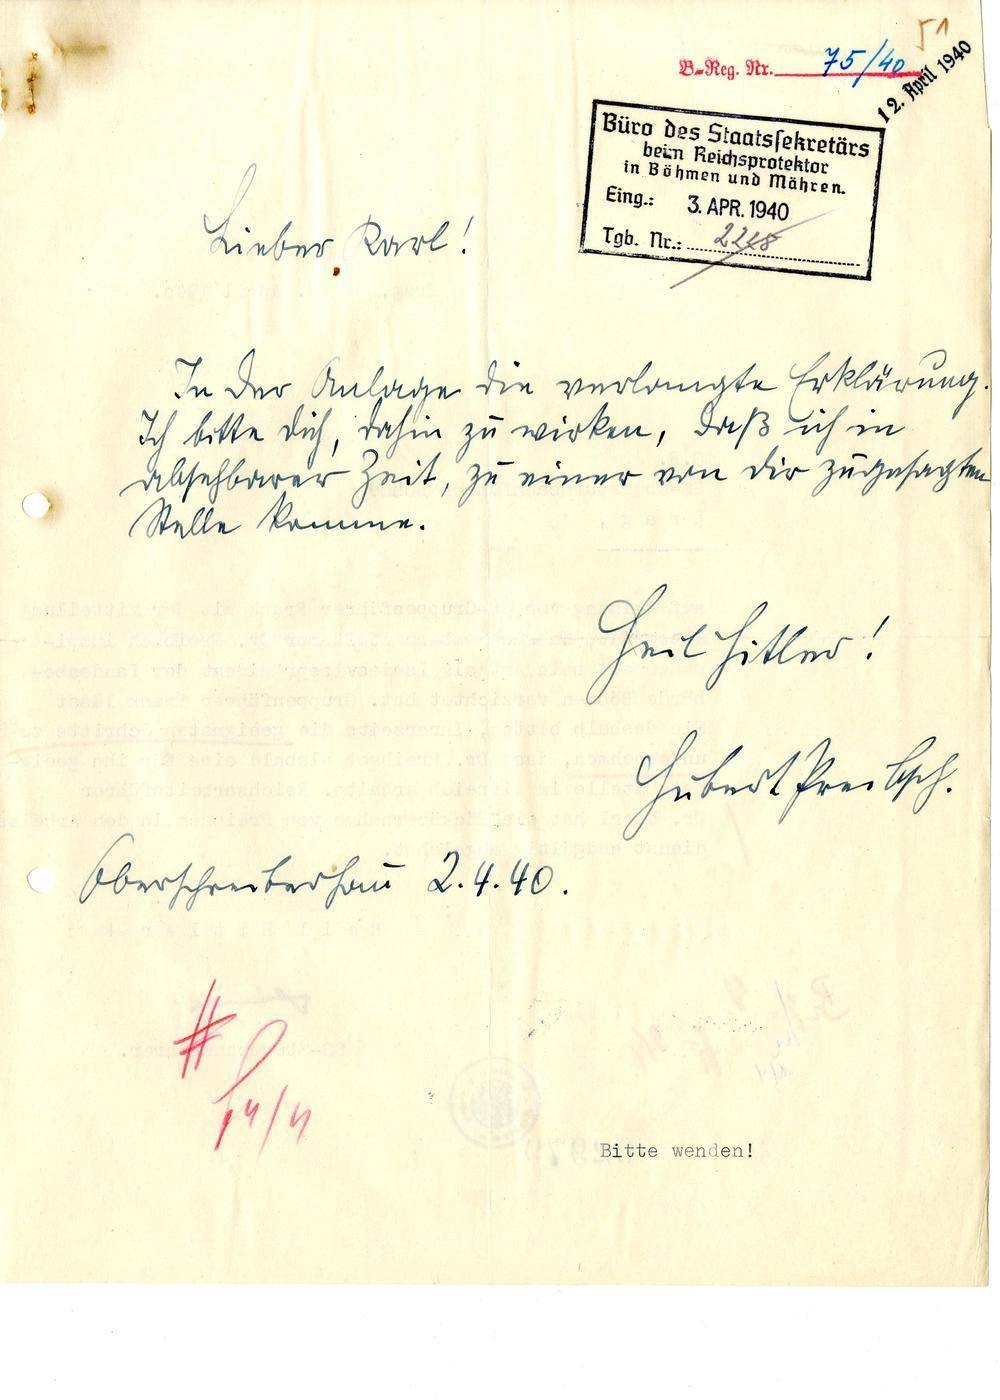 51
B-Reg. Nr. 75/40
12. April 1940
Büro des Staatssekretärs
beim Reichsprotektor
in Böhmen und Mähren.
Eing.: 3. APR. 1940
Tgb. Nr.: 2248
Lieber Karl!
In der Anlage die verlangte Erklärung.
Ich bitte dich, dahin zu wirken, daß ich in
absehbarer Zeit, zu einer von dir zugesagten
Stelle komme.
Heil Hitler!
Hubert Preibsch.
Oberschreiberhau 2.4.40.
Bitte wenden!